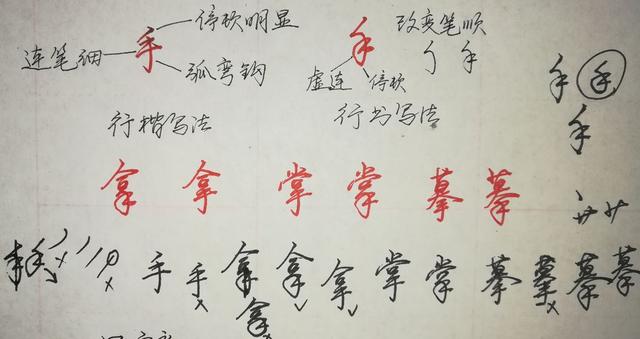 停顿明显 改变笔顺
连笔细 手 手
弧弯钩 虚连 停顿 手
行楷写法 行书写法
手 手
手
拿 拿 掌 掌 摹 摹
手 手 拿 拿 拿 掌 掌 摹 摹 摹 摹
拿